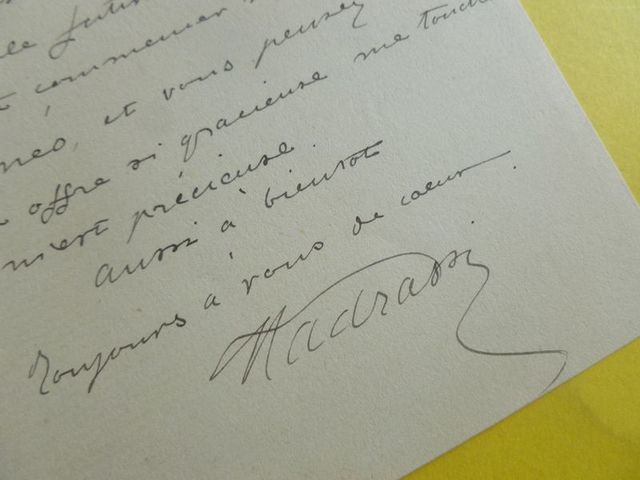 commencer
et vous pensez
offre si gracieuse me touche
m'est précieuse.
aussi à bientôt
Toujours à vous de coeur.
Madrassi